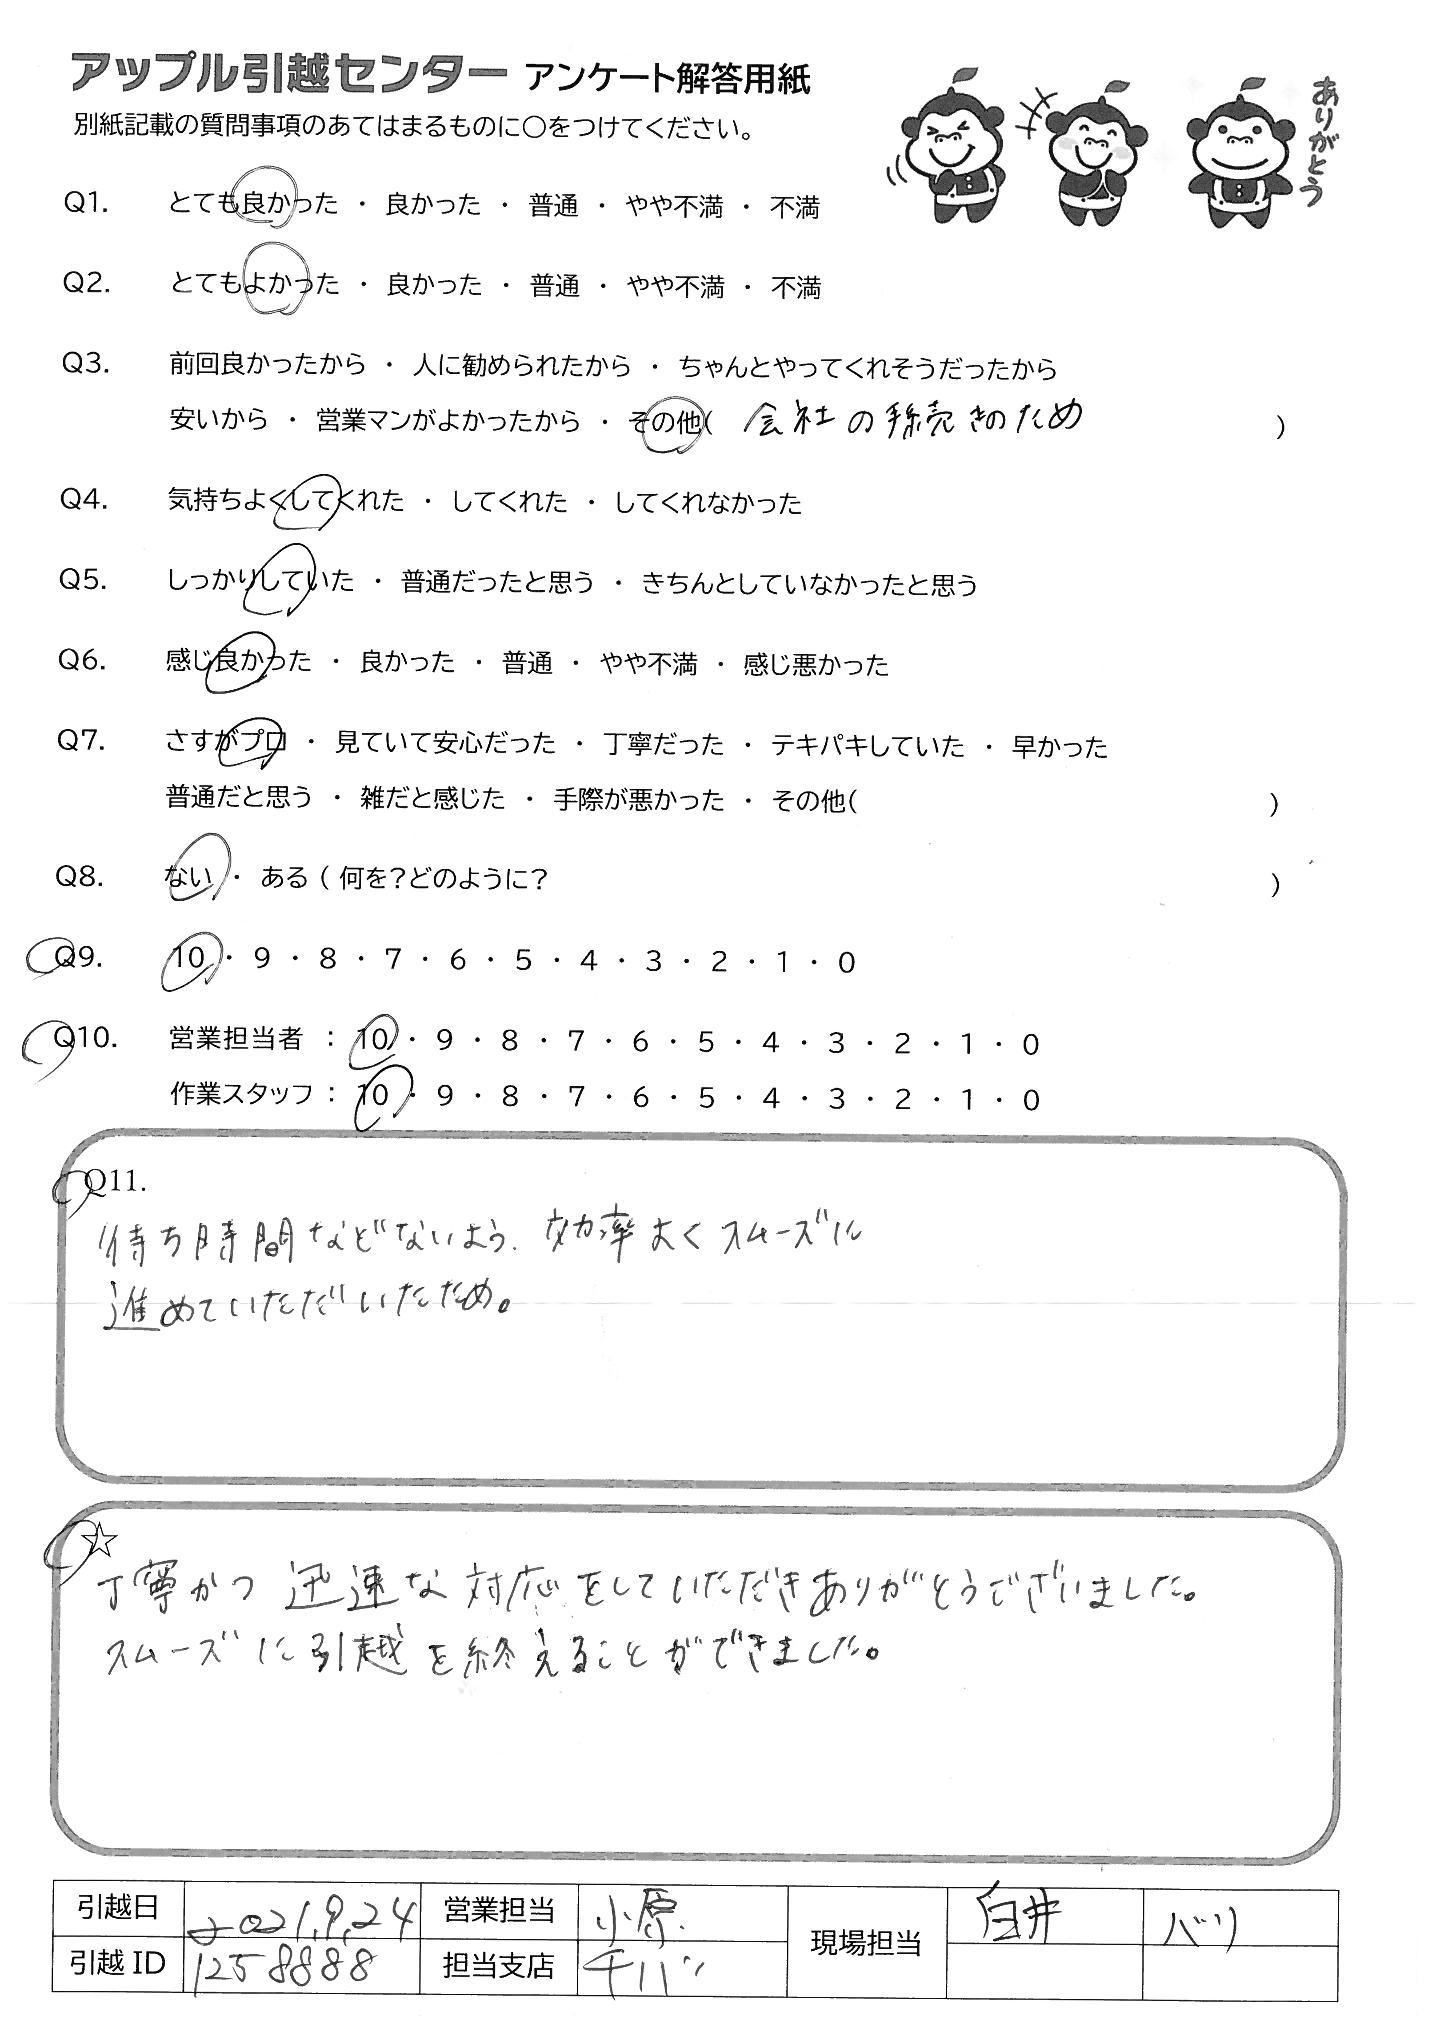 アップル引越センター アンケート解答用紙
別紙記載の質問事項のあてはまるものに○をつけてください。
ありがとう
Q1. とても良かった ・ 良かった ・ 普通 ・ やや不満 ・ 不満
Q2. とてもよかった ・ 良かった ・ 普通 ・ やや不満 ・ 不満
Q3. 前回良かったから ・ 人に勧められたから ・ ちゃんとやってくれそうだったから
安いから ・ 営業マンがよかったから ・ その他( 会社の手続きのため )
Q4. 気持ちよくしてくれた ・ してくれた ・ してくれなかった
Q5. しっかりしていた ・ 普通だったと思う ・ きちんとしていなかったと思う
Q6. 感じ良かった ・ 良かった ・ 普通 ・ やや不満 ・ 感じ悪かった
Q7. さすがプロ ・ 見ていて安心だった ・ 丁寧だった ・ テキパキしていた ・ 早かった
普通だと思う ・ 雑だと感じた ・ 手際が悪かった ・ その他( )
Q8. ない ・ ある ( 何を?どのように? )
Q9. 10 ・ 9 ・ 8 ・ 7 ・ 6 ・ 5 ・ 4 ・ 3 ・ 2 ・ 1 ・ 0
Q10. 営業担当者 : 10 ・ 9 ・ 8 ・ 7 ・ 6 ・ 5 ・ 4 ・ 3 ・ 2 ・ 1 ・ 0
作業スタッフ : 10 ・ 9 ・ 8 ・ 7 ・ 6 ・ 5 ・ 4 ・ 3 ・ 2 ・ 1 ・ 0
Q11.
待ち時間などないよう、効率よくスムーズに
進めていただいたため。
☆
丁寧かつ迅速な対応をしていただきありがとうございました。
スムーズに引越を終えることができました。
引越日 2021.9.24 営業担当 小原 現場担当 白井 バリ
引越ID 1258888 担当支店 千バ